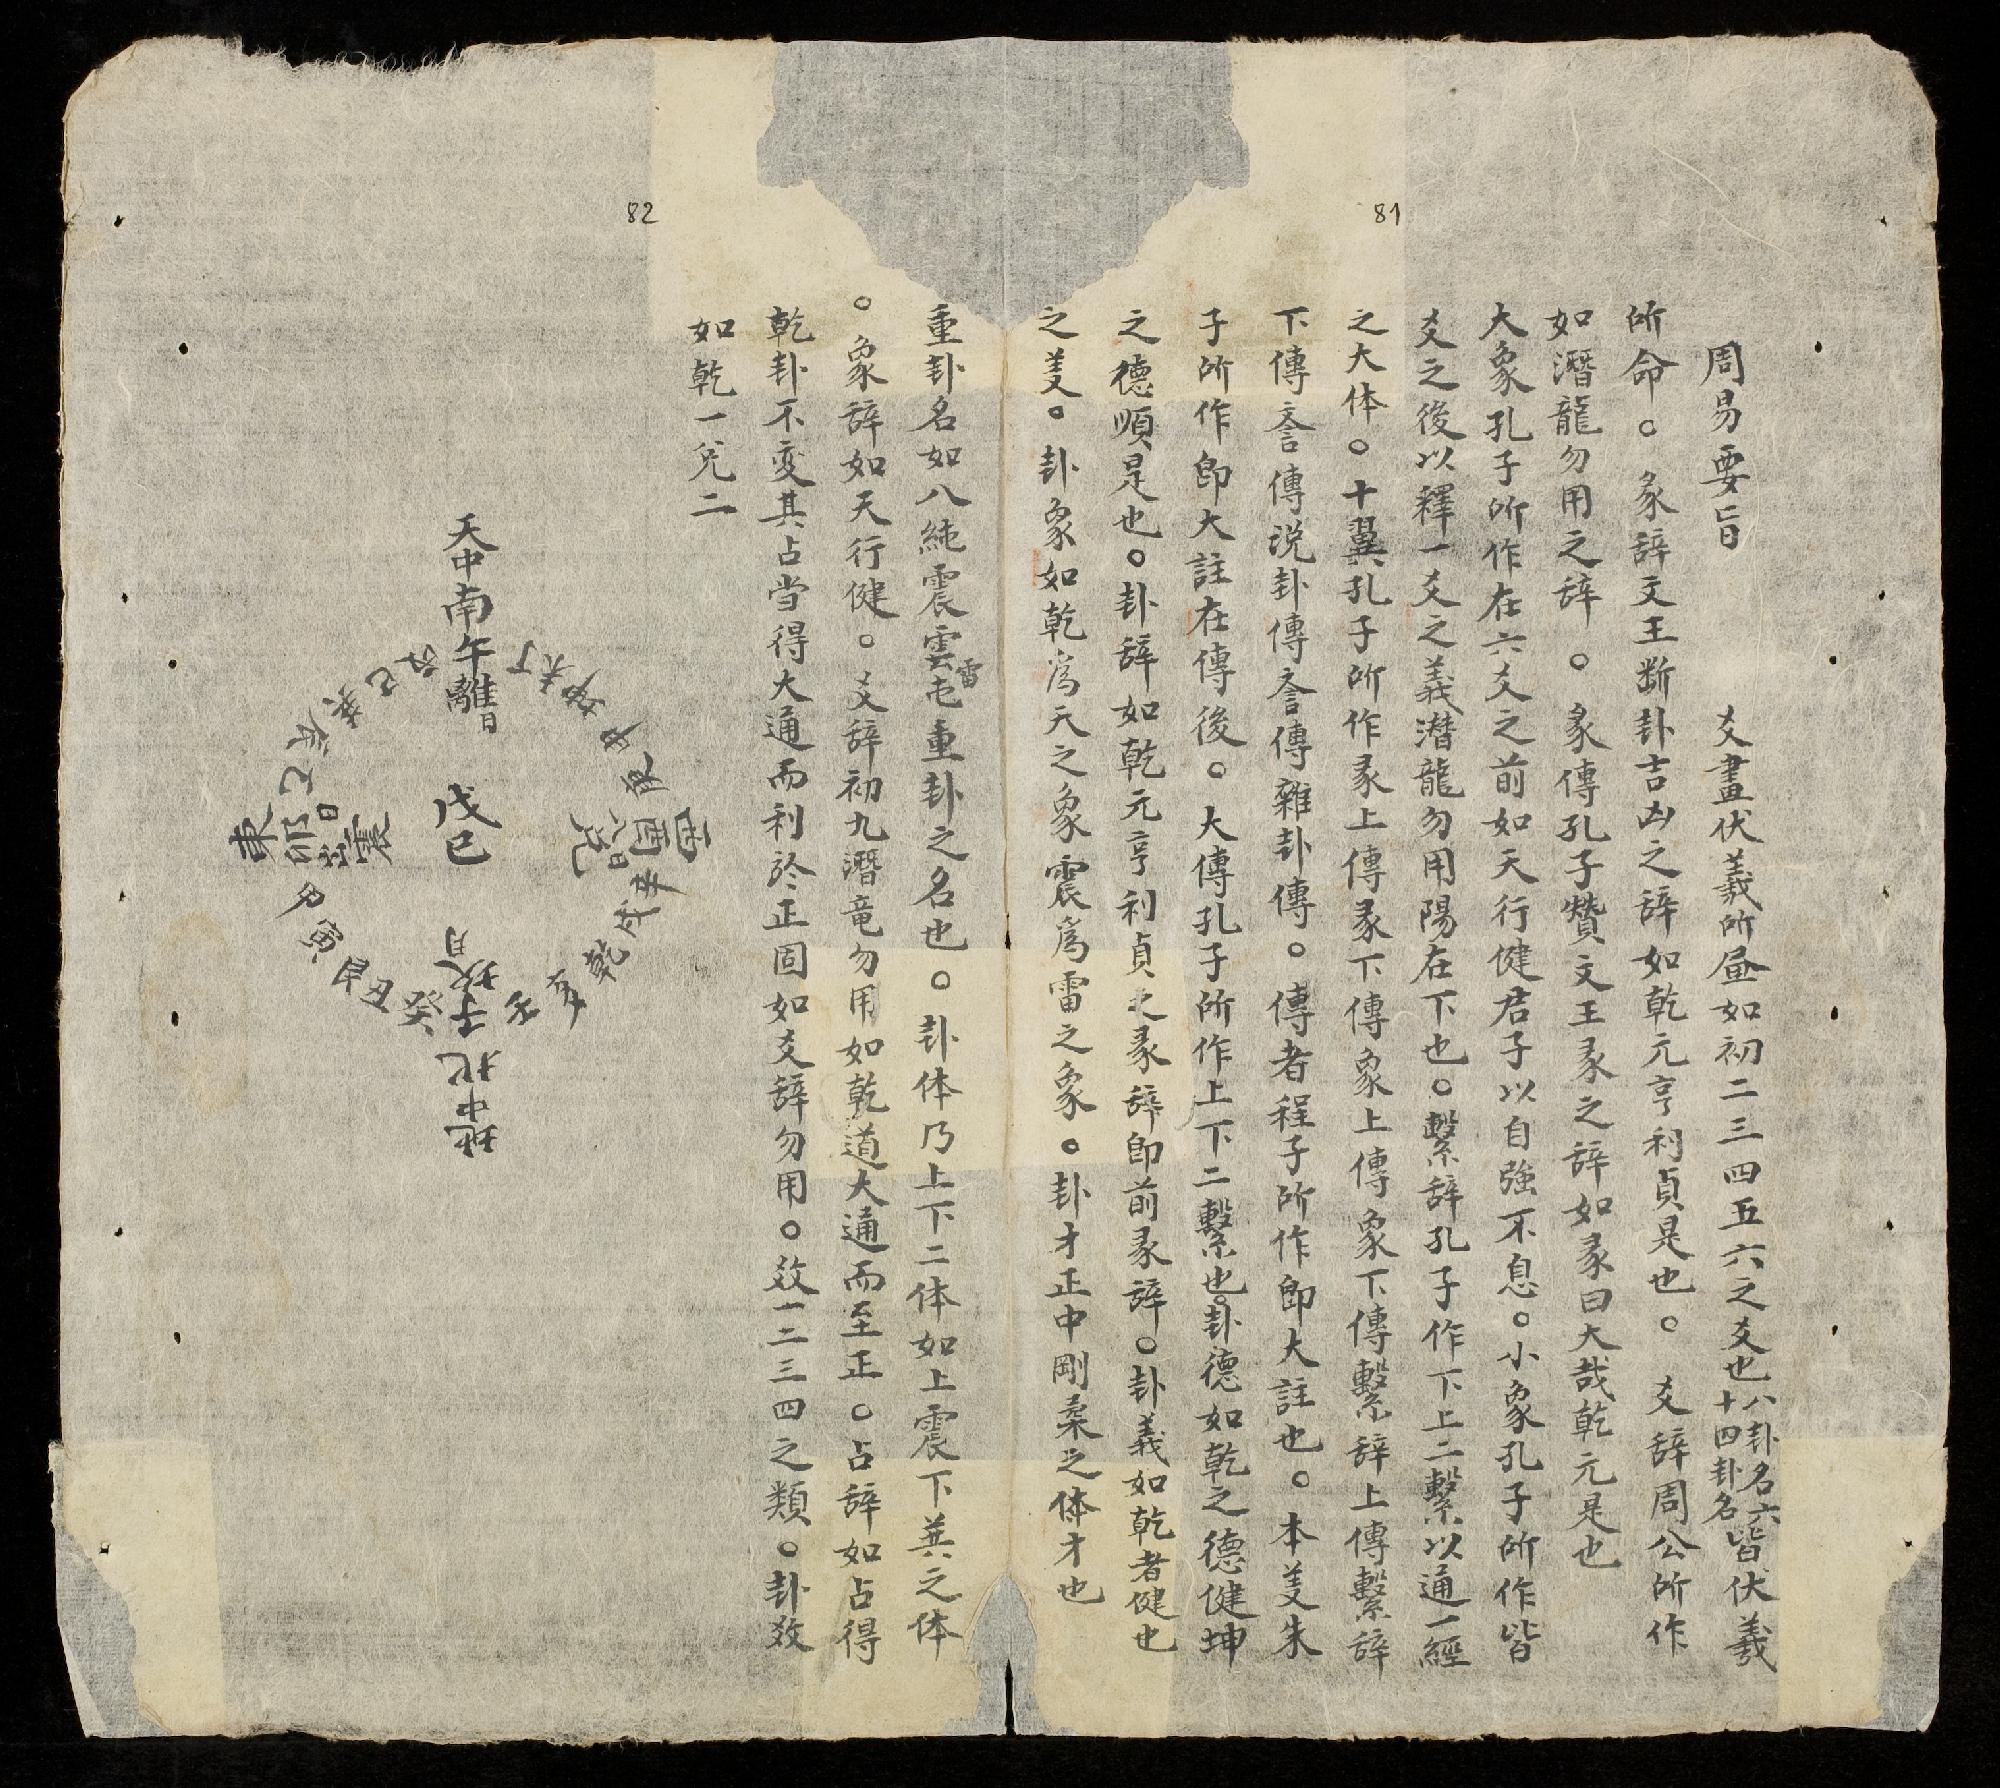 81
周易要旨　　爻畫伏羲所昼如初二三四五六之爻也八卦名六十四卦名皆伏羲
所命。彖辞文王断卦吉凶之辞如乾元亨利貞是也。爻辞周公所作
如潛龍勿用之辞。彖傳孔子贊文王彖之辞如彖曰大哉乾元是也
大象孔子所作在六爻之前如天行健君子以自強不息。小象孔子所作皆
爻之後以釋一爻之義潛龍勿用陽在下也。繫辞孔子作下上二繫以通一經
之大体。十翼孔子所作彖上傳彖下傳象上傳象下傳繫辞上傳繫辞
下傳文言傳说卦傳序傳雜卦傳。傳者程子所作即大註也。本義朱
子所作即大註在傳後。大傳孔子所作上下二繫也。卦德如乾之德健坤
之德順是也。卦辞如乾元亨利貞之彖辞即前彖辞。卦義如乾者健也
之義。卦象如乾為天之象震為雷之象。卦才正中剛柔之体才也
重卦名如八純震雲雷屯重卦之名也。卦体乃上下二体如上震下巽之体
。象辞如天行健。爻辞初九潛竜勿用如乾道大通而至正。占辞如占得
乾卦不変其占当得大通而利於正固如爻辞勿用。效一二三四之類。卦效
如乾一兌二
82
天中南午離日
戊己
東卯日震
西酉日兌
地中北子坎月
丁未
庚
辛
戌
乾
亥
壬
癸
丑
艮
寅
甲
乙
辰
巽
巳